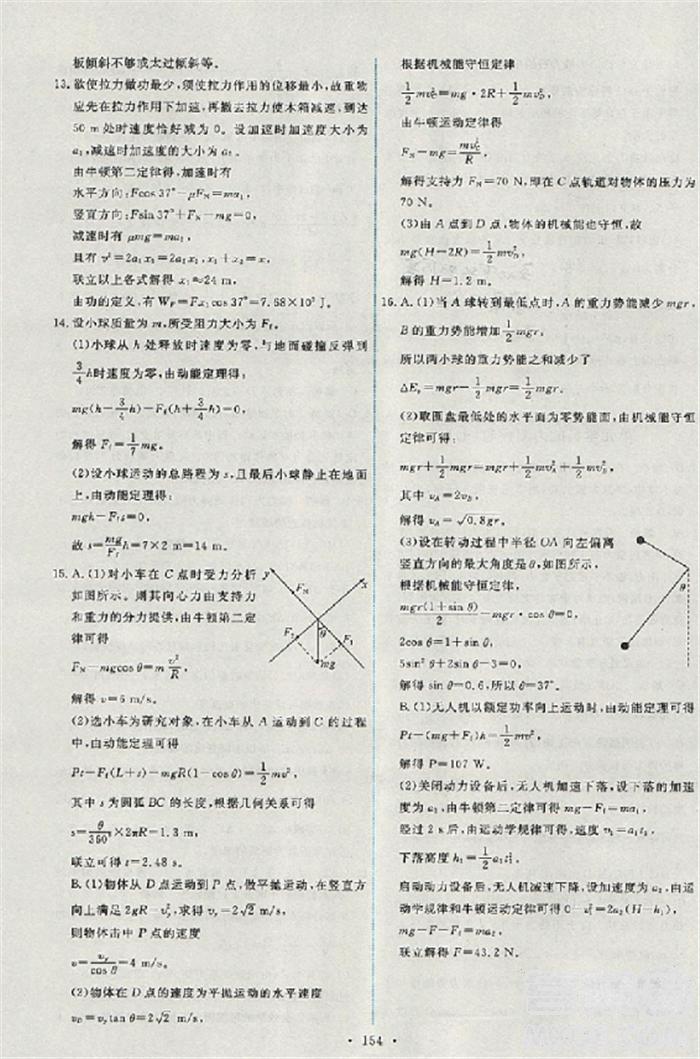 板倾斜不够或太过倾斜等。
13. 欲使拉力做功最少,须使拉力作用的位移最小,故重物
应先在拉力作用下加速,再撤去拉力使木箱减速,到达
50 m处时速度恰好减为0。设加速时加速度大小为
a₁,减速时加速度的大小为a₂。
由牛顿第二定律得,加速时有
水平方向:Fcos 37°-μFN=ma₁,
竖直方向:Fsin 37°+FN-mg=0,
减速时有μmg=ma₂,
且有v²=2a₁x₁=2a₂x₂,x₁+x₂=x,
联立以上各式解得x₁≈24 m,
由功的定义,有WF=Fx₁cos 37°=7.68×10³ J。
14. 设小球质量为m,所受阻力大小为Ff。
(1)小球从h处释放时速度为零,与地面碰撞反弹到
3/4 h时速度为零,由动能定理得:
mg(h-3/4 h)-Ff(h+3/4 h)=0,
解得Ff=1/7 mg。
(2)设小球运动的总路程为s,且最后小球静止在地面
上,由动能定理得:
mgh-Ff s=0,
故s=mg/Ff h=7×2 m=14 m。
15. A.(1)对小车在C点时受力分析
如图所示。则其向心力由支持力
和重力的分力提供,由牛顿第二定
律可得
FN-mgcos θ=m v²/R,
解得v=6 m/s。
y
x
FN
F₂
θ
F₁
mg
(2)选小车为研究对象,在小车从A运动到C的过程
中,由动能定理可得
Pt-Ff(L+s)-mgR(1-cos θ)=1/2 mv²,
其中s为圆弧BC的长度,根据几何关系可得
s=θ/360°×2πR=1.3 m,
联立可得t=2.48 s。
B.(1)物体从D点运动到P点,做平抛运动,在竖直方
向上满足2gR=vy²,求得vy=2√2 m/s,
则物体击中P点的速度
v=vy/cos θ=4 m/s。
(2)物体在D点的速度为平抛运动的水平速度
vD=vy tan θ=2√2 m/s,
根据机械能守恒定律
1/2 mvC²=mg·2R+1/2 mvD²,
由牛顿运动定律得
FN-mg=mvC²/R,
解得支持力FN=70 N,即在C点轨道对物体的压力为
70 N。
(3)由A点到D点,物体的机械能也守恒,故
mg(H-2R)=1/2 mvD²,
解得H=1.2 m。
16. A.(1)当A球转到最低点时,A的重力势能减少mgr,
B的重力势能增加1/2 mgr,
所以两小球的重力势能之和减少了
ΔEp=mgr-1/2 mgr=1/2 mgr。
(2)取圆盘最低处的水平面为零势能面,由机械能守恒
定律可得:
mgr+1/2 mgr=mgr+1/2 mvA²+1/2 mvB²,
其中vA=2vB,
解得vA=√0.8gr。
(3)设在转动过程中半径OA向左偏离
竖直方向的最大角度是θ,如图所示,
根据机械能守恒定律,
mgr(1+sin θ)/2-mgr·cos θ=0,
2cos θ=1+sin θ,
5sin² θ+2sin θ-3=0,
解得sin θ=0.6,所以θ=37°。
θ
B.(1)无人机以额定功率向上运动时,由动能定理可得
Pt-(mg+Ff)h=1/2 mv²,
解得P=107 W。
(2)关闭动力设备后,无人机加速下落,设下落的加速
度为a₁,由牛顿第二定律可得mg-Ff=ma₁,
经过2 s后,由运动学规律可得,速度v₁=a₁t₁,
下落高度h₁=1/2 a₁t₁²,
启动动力设备后,无人机减速下降,设加速度为a₂,由运
动学规律和牛顿运动定律可得0-v₁²=2a₂(H-h₁),
mg-F-Ff=ma₂,
联立解得F=43.2 N。
· 154 ·